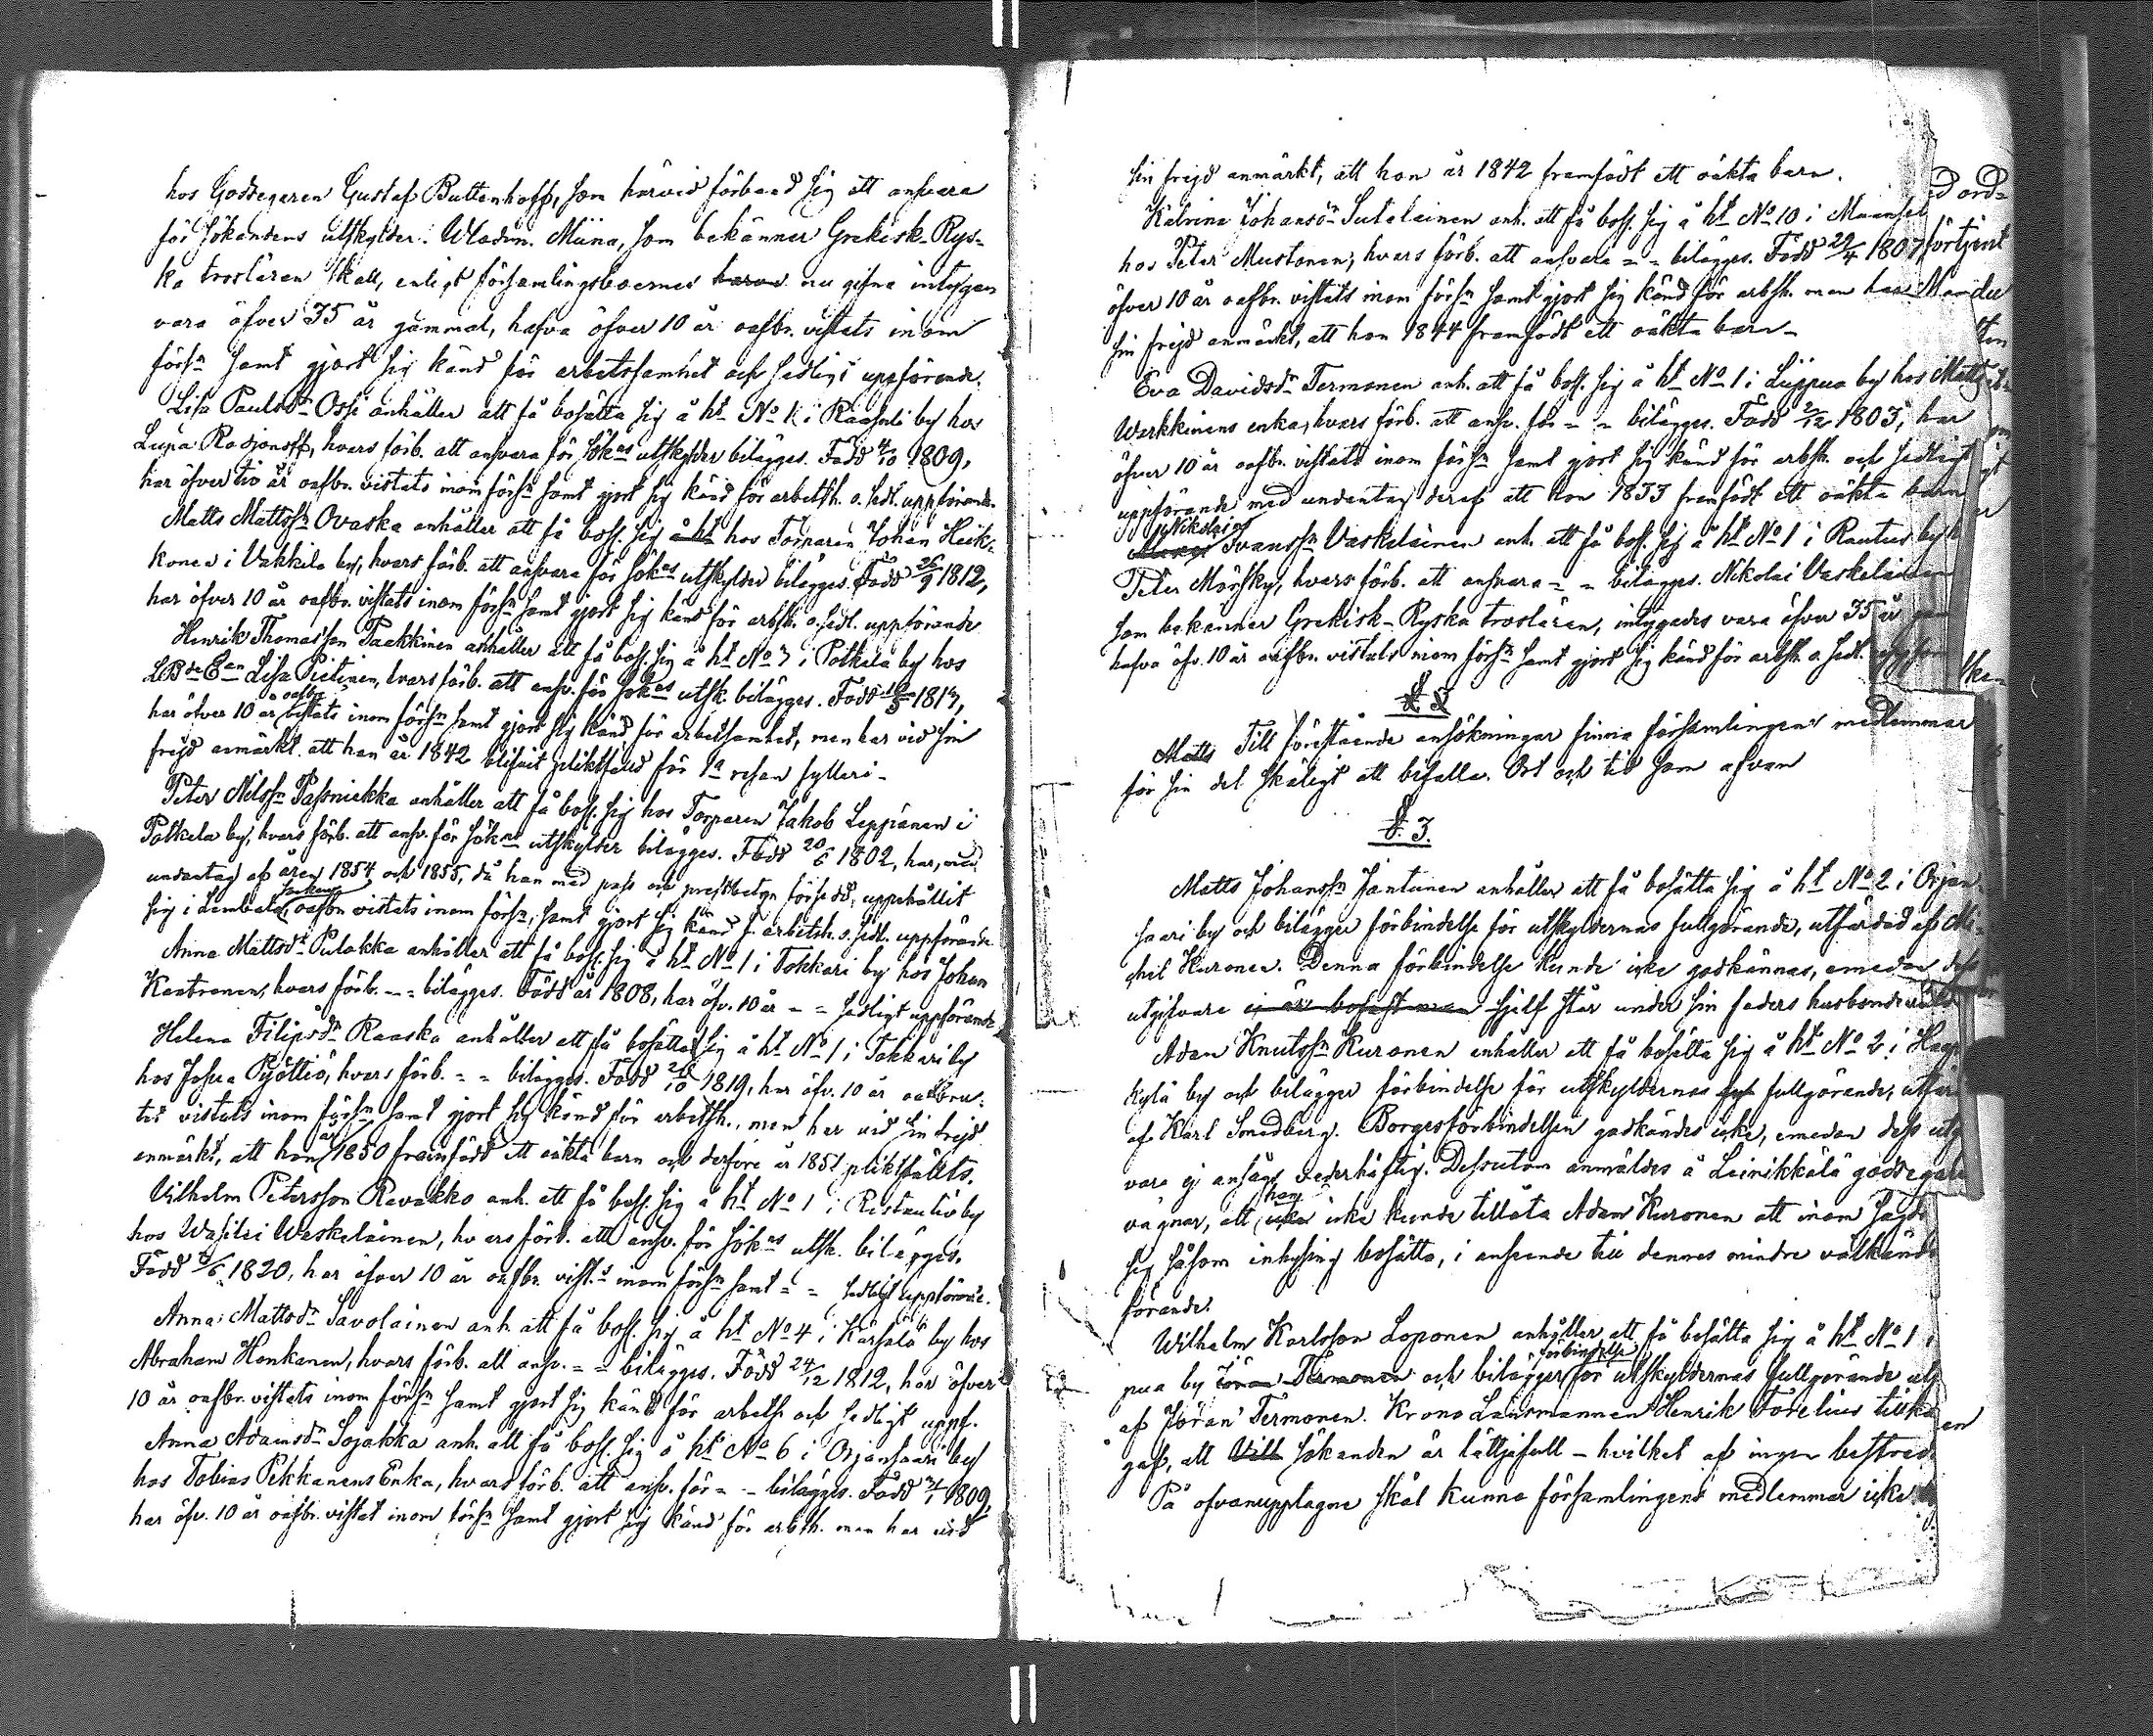 hos Godsegaren Gustaf Buttenhoff, som härvid förband sig att ansvara
för sökandens utskylder. Wladim. Miina, som bekänner Grekisk-Rys-
ka trosläran skall, enligt församlingsboernes nu gifna intygan
vara öfver 35 år gammal, hafva öfver 10 år oafbr. vistats inom
förs:n samt gjort sig känd för arbetsamhet och sedligt uppförande.
Lisa Paulsd:r Ossi anhåller att få bosätta sig å ht No 1 i Raasuli by hos
Lupa Radjonoff, hvars förb. att ansvara för sök:as utskylder bilägges. Född 4/10 1809,
har öfver tio år oafbr. vistats inom förs:n samt gjort sig känd för arbetsh. o. sedl. uppförande.
Matts Mattss:n Ovaska anhåller att få bos. sig å ht hos Torparen Johan Heik-
konen i Vakkila by, hvars förb. att ansvara för sök:as utskylder bilägges. Född 26/9 1812,
har öfver 10 år oafbr. vistats inom förs:n samt gjort sig känd för arbsh. o. sedl. uppförande
Henrik Thomasson Paakkinen anhåller att få bos. sig å ht No 3 i Potkela by hos
Lisa Pietinen, hvars förb. att ansv. för sök:as utsk. bilägges. Född 1813,
har öfver 10 år oafbr. vistats inom förs:n samt gjort sig känd för arbetsamhet, men har vid sin
frejd anmärkt att han år 1842 blifvit pliktfälld för 1:a resan fylleri.
Peter Nilss:n Passnikka anhåller att få bos. sig hos Torparen Jakob Leppänen i
Potkela by, hvars förb. att ansv. för sök:as utskylder bilägges. Född 20/6 1802, har, med
undantag af åren 1854 och 1855, då han med pass och prestbetyg försedd, uppehållit
sig i Lembala socken, oafbr. vistats inom förs:n, samt gjort sig känd f. arbetsh. o. sedl. uppförande
Anna Mattsd:r Pulakka anhåller att få bos. sig å ht No 1 i Tokkari by hos Johan
Kaatronen, hvars förb. - = bilägges. Född år 1808, har öfv. 10 år - = sedligt uppförande
Helena Filipsd:r Raaska anhåller att få bosätta sig å ht No 1 i Tokkari by
hos Josua Pyöttiö, hvars förb. = = bilägges. Född 28/10 1819, har öfv. 10 år oafbru-
tet vistats inom förs:n samt gjort sig känd för arbetsh., men har vid sin frejd
anmärkt, att hon år 1850 framfödt ett oäkta barn och derföre år 1851 pliktfällts.
Vilhelm Petersson Revakko anh. att få bos. sig å ht No 1 i Ristautio by
hos Wasilei Waskelainen, hvars förb. att ansv. för sök:as utsk. bilägges.
Född 1820, har öfver 10 år oafbr. vist:s inom förs:n samt = = sedligt uppförande.
Anna Mattsd:r Savolainen anh. att få bos. sig å ht No 4 i Kärsälä by hos
Abraham Honkanen, hvars förb. att ansv. = = bilägges. Född 24/12 1812, har öfver
10 år oafbr. vistats inom förs:n samt gjort sig känd för arbetsh. och sedligt uppf.
Anna Adamsd:r Sojakka anh. att få bos. sig å ht No 6 i Orjansaari by
hos Tobias Pekkanens Enka, hvars förb. att ansv. för = - bilägges. Född 1809,
har öfv. 10 år oafbr. vistat inom förs:n samt gjort sig känd för arbsh. men har vid
sin frejd anmärkt, att hon år 1842 framfödt ett oäkta barn.
Katrina Johansd:r Sutelainen anh. att få bos. sig å ht No 10 i
hos Peter Mustonen, hvars förb. att ansvara = = bilägges. Född 29/4 1807
öfver 10 år oafbr. vistats inom förs:n samt gjort sig känd för arbsh. men har
sin frejd anmärkt, att hon 1844 framfödt ett oäkta barn -
Eva Davidsd:r Termonen anh. att få bos. sig å ht No 1 i Lippua by hos Matts
Warkkinens enka, hvars förb. att ansv. för - = bilägges. Född 2/12 1803, har
öfver 10 år oafbr. vistats inom förs:n samt gjort sig känd för arbsh. och sedligt
uppförande med undantag deraf att hon 1833 framfödt ett oäkta barn
Nikolai
Ivanss:n Vaskelainen anh. att få bos. sig å ht No 1 i Rautus by
Peter Mörsky, hvars förb. att ansvara = = bilägges. Nikolai Vaskelainen
som bekänner Grekisk-Ryska trosläran, intygades vara öfver 35 år
hafva öfv. 10 år oafbr. vistats inom förs:n samt gjort sig känd för arbsh. o. sedl.
§ 2
Matts Till förestående ansökningar finna församlingens medlemmar
för sin del skäligt att bifalla. Ort och tid som ofvan
§. 3.
Matts Johanss:n Jantunen anhåller att få bosätta sig å ht No 2 i Orjan-
saari by och bilägger förbindelse för utskyldernas fullgörande, utfärdad af Mi-
chel Kuronen. Denna förbindelse kunde icke godkännas, emedan dess
utgifvare ej är bofast men sjelf står under sin faders husbondevälde
Adam Knutss:n Kuronen anhåller att få bosätta sig å ht No 2 i
kylä by och bilägger förbindelse för utskyldernas fullgörande, utfär
af Karl Smedberg. Borgesförbindelsen godkändes icke, emedan dess utg
vare ej ansågs vederhäftig. Dessutom anmäldes å Leinikkälä godsegare
vägnar, att han icke kunde tillåta Adam Kuronen att inom sagde
sig såsom inhysing bosätta, i anseende till dennes mindre välkända
förande.
Wilhelm Karlsson Loponen anhåller att få bosätta sig å ht No 1 i
pua by Jöran Termonen och bilägger förbindelse för utskyldernas fullgörande utg
af Jöran Termonen. Krono Länsmannen Henrik Forelius tillkä
gaf, att Vilh sökanden är lättjefull - hvilket af ingen bestred
På ofvanupptagne skäl kunna församlingens medlemmar icke